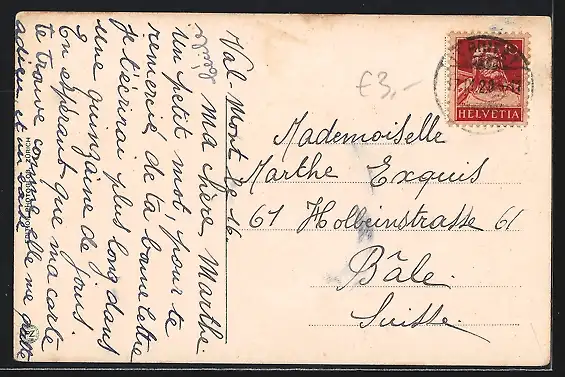 Val-Mont le 16.
Ma chère Marthe.
Un petit mot, pour te
remercie de ta bonne lettre
je t'écrirai plus long dans
une quinzaine de jours.
En espérant que ma carte
te trouve comme elle me quitte
adieu, et un
Mademoiselle
Marthe Exquis
61 Holbeinstrasse 61
Bâle.
Suisse.
£3,-
HELVETIA